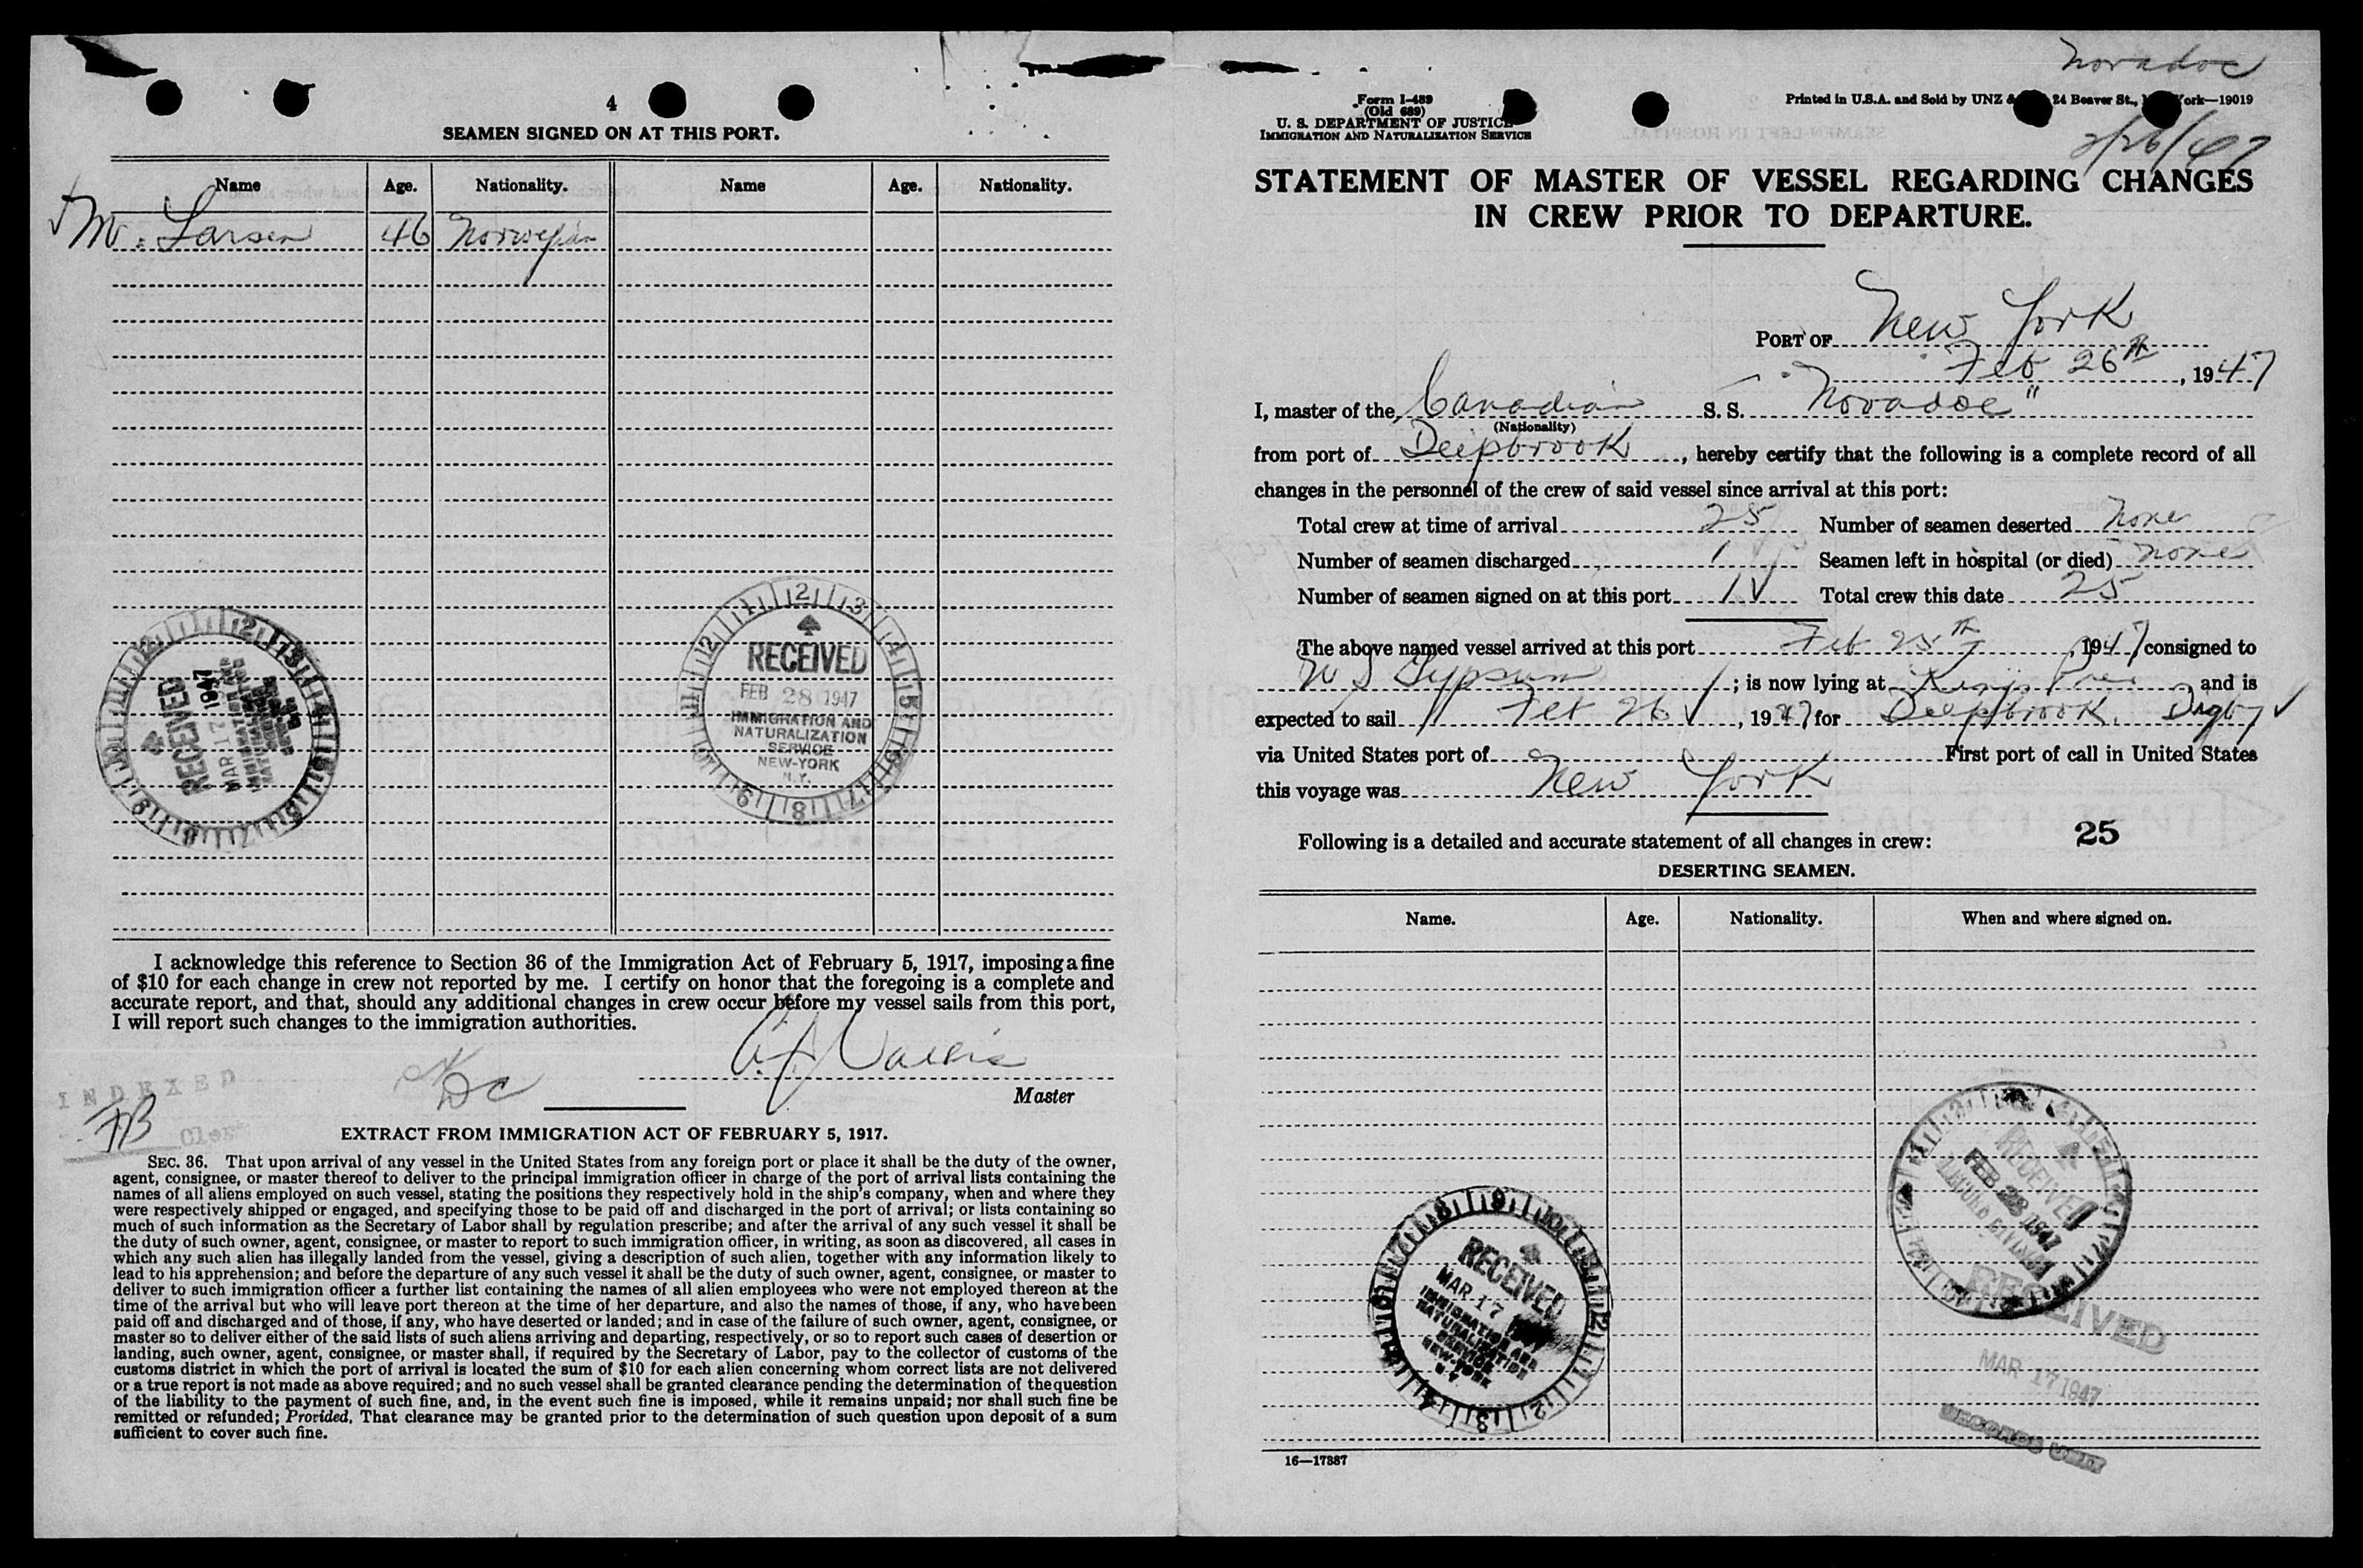 4
SEAMEN SIGNED ON AT THIS PORT.
Name Age. Nationality. Name Age. Nationality.
M. Larsen 46 Norwegian
RECEIVED
MAR 17 1947
RECEIVED
FEB 28 1947
IMMIGRATION AND
NATURALIZATION
SERVICE
NEW-YORK
N.Y.
I acknowledge this reference to Section 36 of the Immigration Act of February 5, 1917, imposing a fine
of $10 for each change in crew not reported by me. I certify on honor that the foregoing is a complete and
accurate report, and that, should any additional changes in crew occur before my vessel sails from this port,
I will report such changes to the immigration authorities.
Master
INDEXED
EXTRACT FROM IMMIGRATION ACT OF FEBRUARY 5, 1917.
SEC. 36. That upon arrival of any vessel in the United States from any foreign port or place it shall be the duty of the owner,
agent, consignee, or master thereof to deliver to the principal immigration officer in charge of the port of arrival lists containing the
names of all aliens employed on such vessel, stating the positions they respectively hold in the ship's company, when and where they
were respectively shipped or engaged, and specifying those to be paid off and discharged in the port of arrival; or lists containing so
much of such information as the Secretary of Labor shall by regulation prescribe; and after the arrival of any such vessel it shall be
the duty of such owner, agent, consignee, or master to report to such immigration officer, in writing, as soon as discovered, all cases in
which any such alien has illegally landed from the vessel, giving a description of such alien, together with any information likely to
lead to his apprehension; and before the departure of any such vessel it shall be the duty of such owner, agent, consignee, or master to
deliver to such immigration officer a further list containing the names of all alien employees who were not employed thereon at the
time of the arrival but who will leave port thereon at the time of her departure, and also the names of those, if any, who have been
paid off and discharged and of those, if any, who have deserted or landed; and in case of the failure of such owner, agent, consignee, or
master so to deliver either of the said lists of such aliens arriving and departing, respectively, or so to report such cases of desertion or
landing, such owner, agent, consignee, or master shall, if required by the Secretary of Labor, pay to the collector of customs of the
customs district in which the port of arrival is located the sum of $10 for each alien concerning whom correct lists are not delivered
or a true report is not made as above required; and no such vessel shall be granted clearance pending the determination of the question
of the liability to the payment of such fine, and, in the event such fine is imposed, while it remains unpaid; nor shall such fine be
remitted or refunded; Provided, That clearance may be granted prior to the determination of such question upon deposit of a sum
sufficient to cover such fine.
Novadoc
2/26/47
Form I-489
(Old 689)
U. S. DEPARTMENT OF JUSTICE
IMMIGRATION AND NATURALIZATION SERVICE
Printed in U.S.A. and Sold by UNZ & 24 Beaver St., York—19019
STATEMENT OF MASTER OF VESSEL REGARDING CHANGES
IN CREW PRIOR TO DEPARTURE.
PORT OF New York
Feb 26th, 1947
I, master of the Canadian S. S. "Novadoc"
(Nationality)
from port of Deepbrook, hereby certify that the following is a complete record of all
changes in the personnel of the crew of said vessel since arrival at this port:
Total crew at time of arrival 25 Number of seamen deserted None
Number of seamen discharged 1 Seamen left in hospital (or died) none
Number of seamen signed on at this port 1 √ Total crew this date 25
The above named vessel arrived at this port Feb 25th, 1947 consigned to
U S Gypsum; is now lying at and is
expected to sail Feb 26 √, 1947 for Deepbrook. Digby √
via United States port of First port of call in United States
this voyage was New York
Following is a detailed and accurate statement of all changes in crew: 25
DESERTING SEAMEN.
Name. Age. Nationality. When and where signed on.
RECEIVED
FEB 28 1947
RECEIVED
MAR 17 1947
IMMIGRATION AND
NATURALIZATION
SERVICE
NEW-YORK
N.Y.
RECEIVED
MAR 17 1947
RECORDS UNIT
16—17387